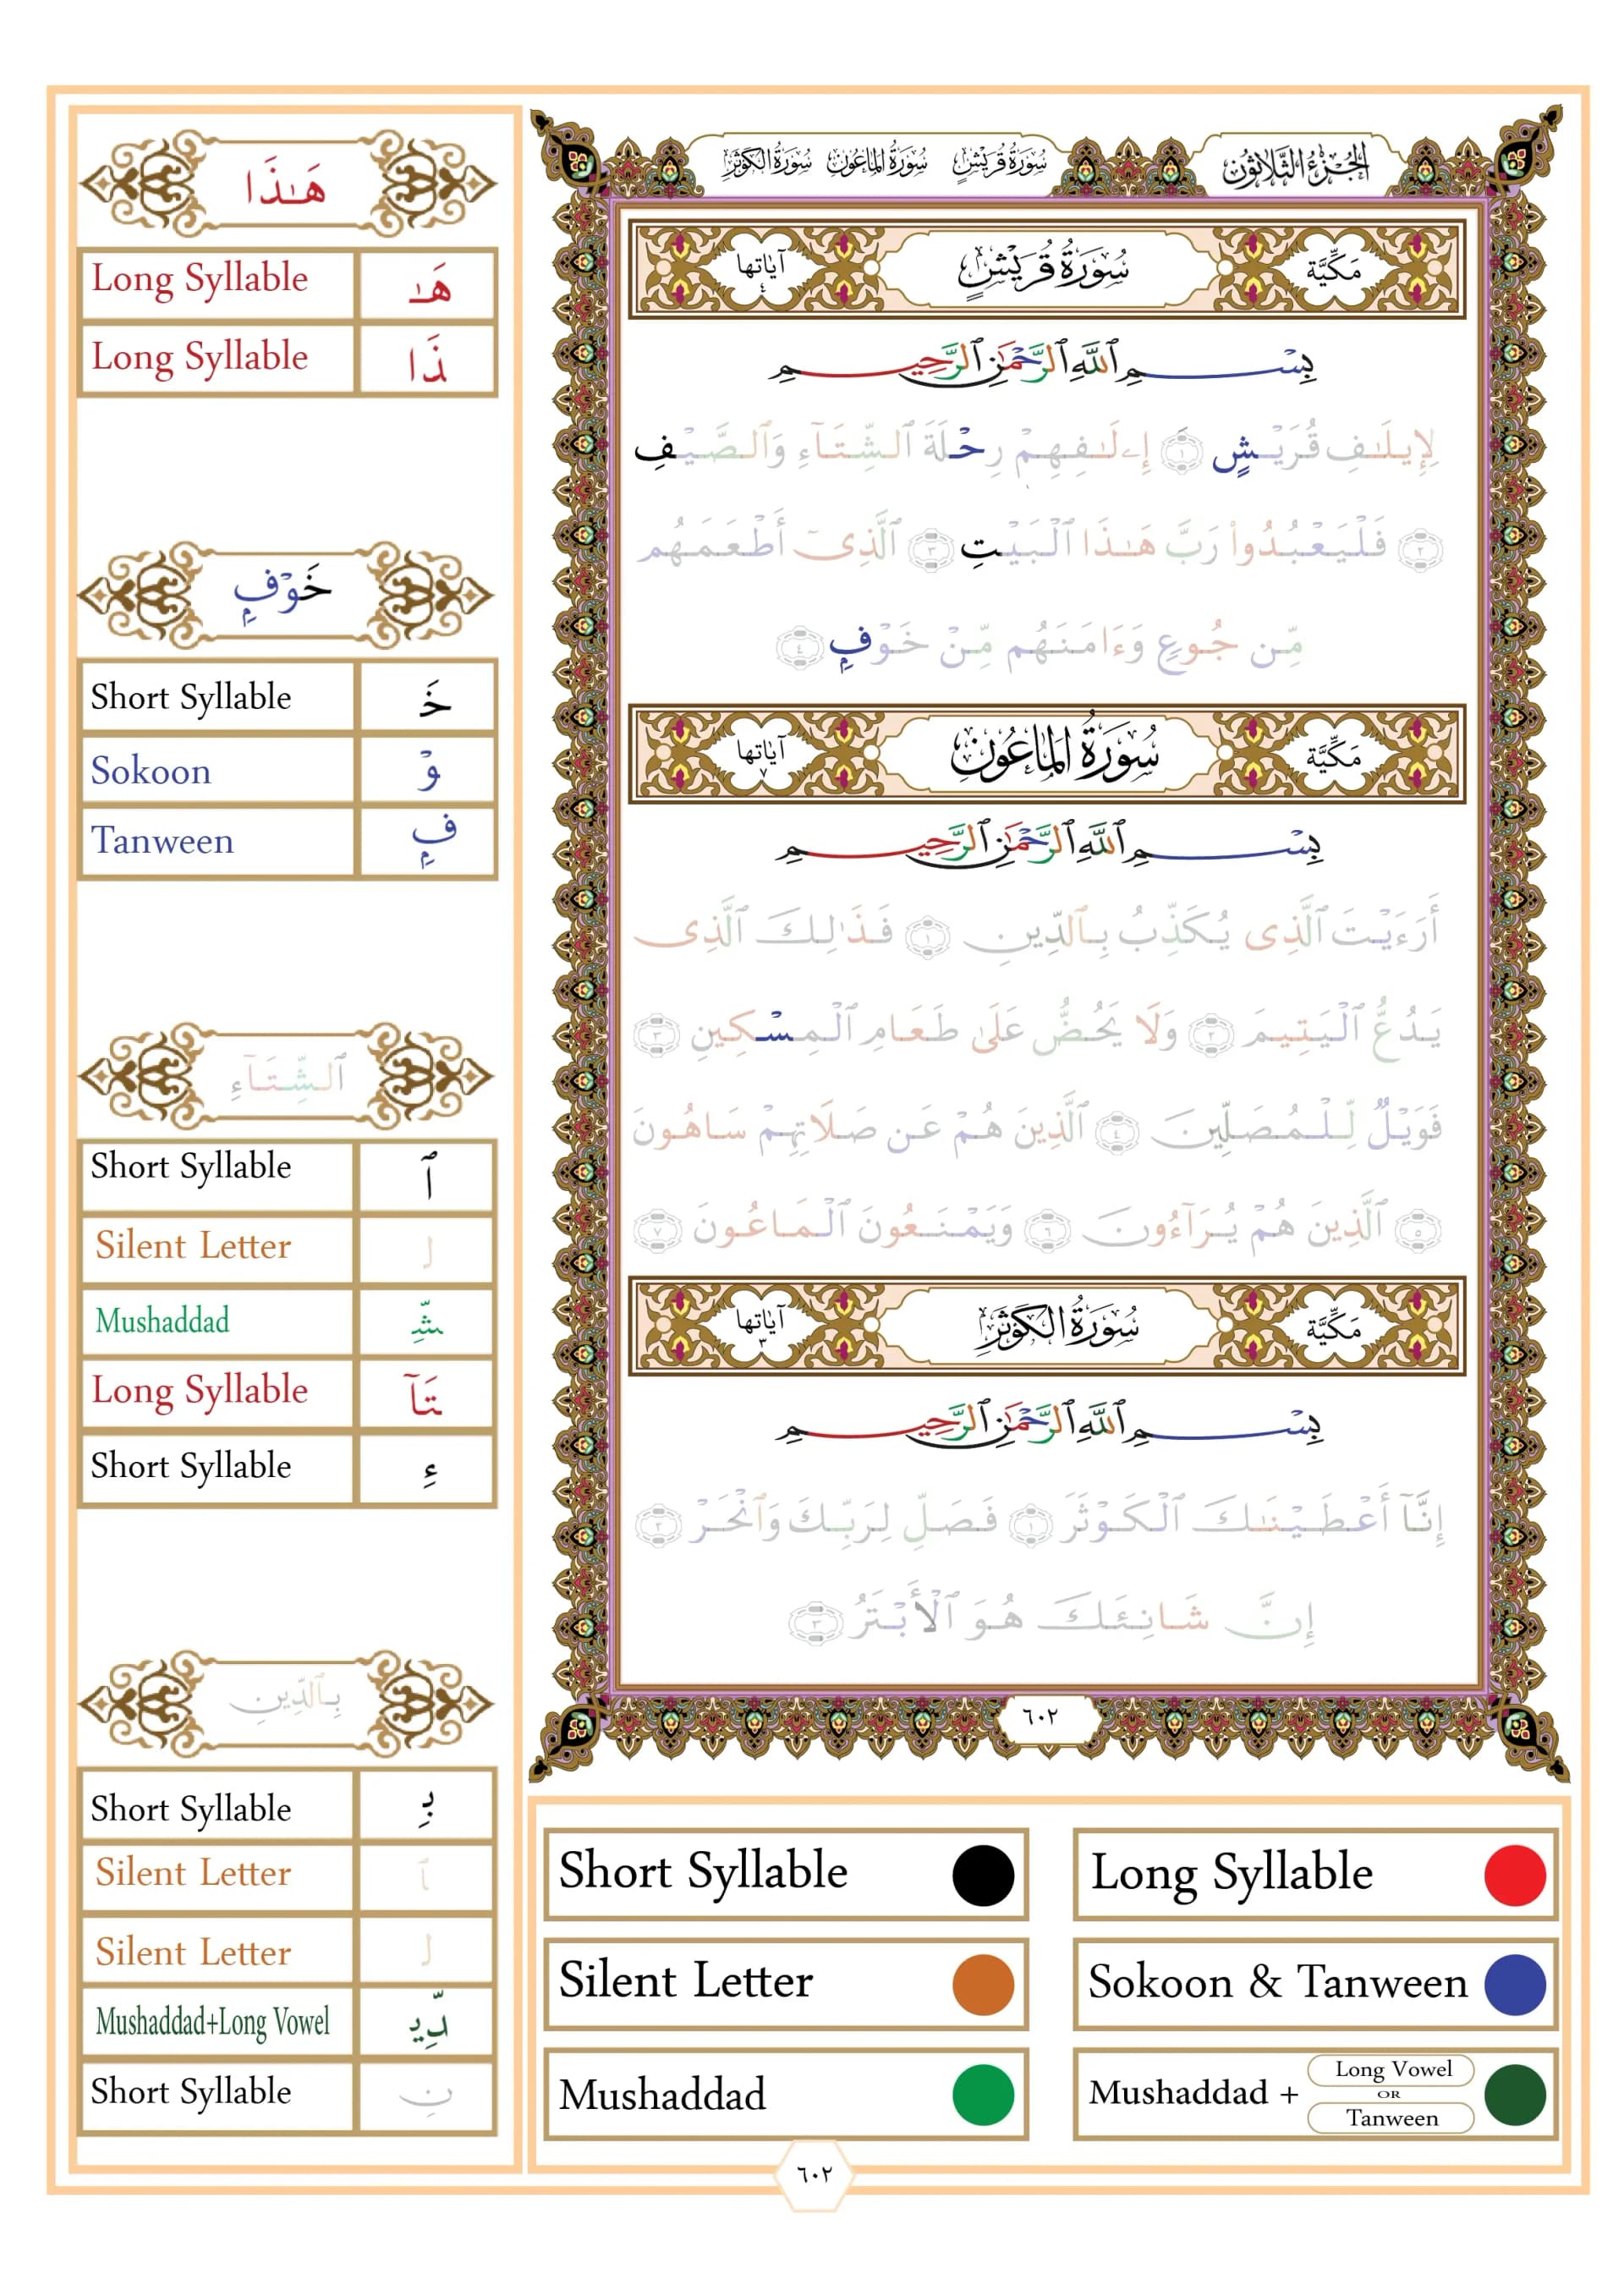 الجُزْءُ الثَّلَاثُونَ
سُورَةُ قُرَيْشٍ سُورَةُ المَاعُونِ سُورَةُ الكَوْثَرِ
مَكِّيَّة
سُورَةُ قُرَيْشٍ
آيَاتها ٤
بِسْمِ ٱللَّهِ ٱلرَّحْمَٰنِ ٱلرَّحِيمِ
لِإِيلَٰفِ قُرَيْشٍ ١ إِۦلَٰفِهِمْ رِحْلَةَ ٱلشِّتَآءِ وَٱلصَّيْفِ
٢ فَلْيَعْبُدُوا۟ رَبَّ هَٰذَا ٱلْبَيْتِ ٣ ٱلَّذِىٓ أَطْعَمَهُم
مِّن جُوعٍ وَءَامَنَهُم مِّنْ خَوْفٍۭ ٤
مَكِّيَّة
سُورَةُ المَاعُونِ
آيَاتها ٧
بِسْمِ ٱللَّهِ ٱلرَّحْمَٰنِ ٱلرَّحِيمِ
أَرَءَيْتَ ٱلَّذِى يُكَذِّبُ بِٱلدِّينِ ١ فَذَٰلِكَ ٱلَّذِى
يَدُعُّ ٱلْيَتِيمَ ٢ وَلَا يَحُضُّ عَلَىٰ طَعَامِ ٱلْمِسْكِينِ ٣
فَوَيْلٌ لِّلْمُصَلِّينَ ٤ ٱلَّذِينَ هُمْ عَن صَلَاتِهِمْ سَاهُونَ
٥ ٱلَّذِينَ هُمْ يُرَآءُونَ ٦ وَيَمْنَعُونَ ٱلْمَاعُونَ ٧
مَكِّيَّة
سُورَةُ الكَوْثَرِ
آيَاتها ٣
بِسْمِ ٱللَّهِ ٱلرَّحْمَٰنِ ٱلرَّحِيمِ
إِنَّآ أَعْطَيْنَٰكَ ٱلْكَوْثَرَ ١ فَصَلِّ لِرَبِّكَ وَٱنْحَرْ ٢
إِنَّ شَانِئَكَ هُوَ ٱلْأَبْتَرُ ٣
٦٠٢
هَٰذَا
Long Syllable هَٰـ
Long Syllable ذَا
خَوْفٍۭ
Short Syllable خَـ
Sokoon وْ
Tanween فٍۭ
ٱلشِّتَآءِ
Short Syllable ٱ
Silent Letter لـ
Mushaddad ـشِّـ
Long Syllable ـتَآ
Short Syllable ءِ
بِٱلدِّينِ
Short Syllable بِـ
Silent Letter ٱ
Silent Letter لـ
Mushaddad+Long Vowel ـدِّيـ
Short Syllable نِ
Short Syllable
Long Syllable
Silent Letter
Sokoon & Tanween
Mushaddad
Mushaddad + Long Vowel OR Tanween
٦٠٢